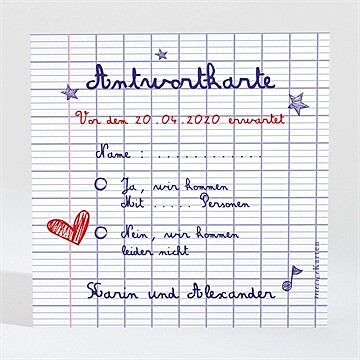 Antwortkarte
Vor dem 20.04.2020 erwartet
Name : .............
Ja, wir kommen
Mit ..... Personen
Nein, wir kommen
leider nicht
Karin und Alexander
meineKarten